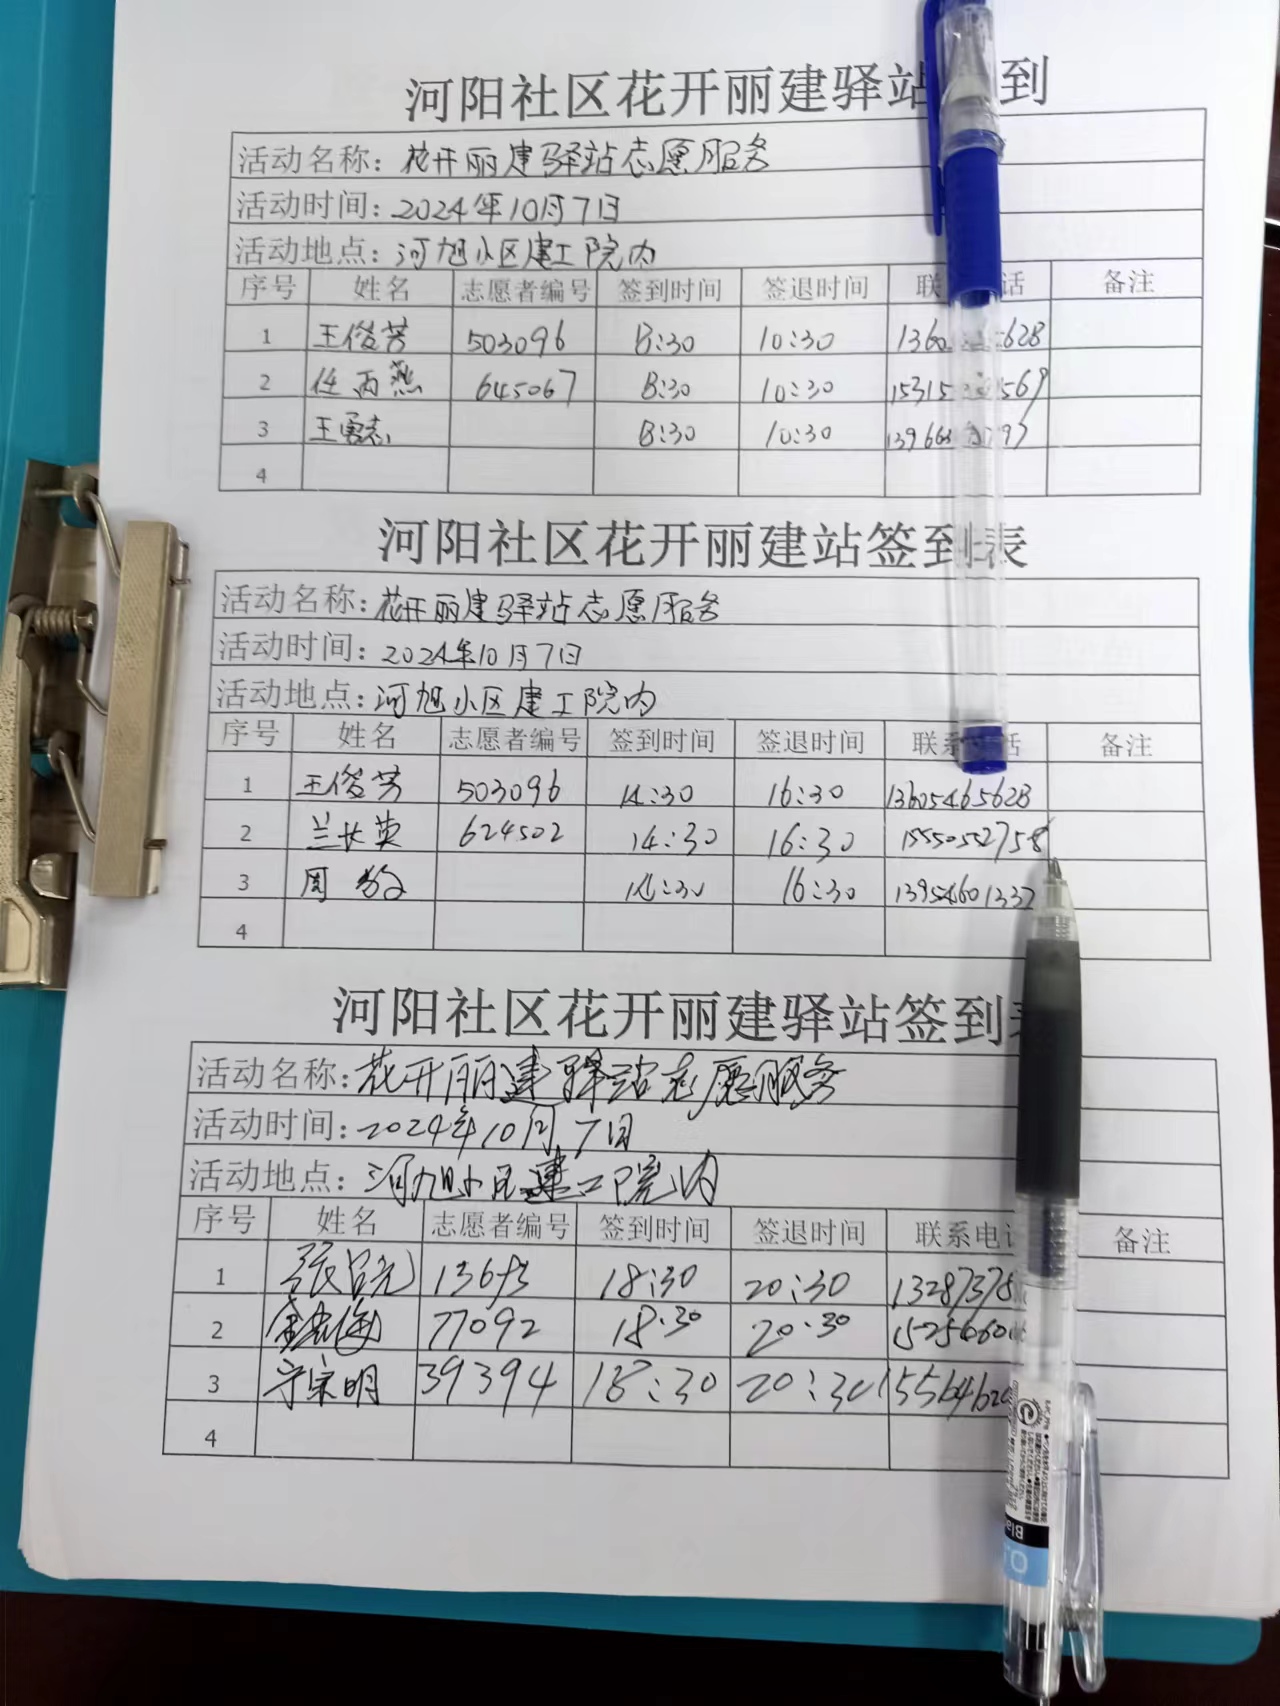 河阳社区花开丽建驿站 到
活动名称：花开丽建驿站志愿服务
活动时间：2024年10月7日
活动地点：河旭小区建工院内
序号 姓名 志愿者编号 签到时间 签退时间 联 话 备注
1 王俊芳 503096 8:30 10:30 1360 628
2 任丙燕 645067 8:30 10:30 15315 569
3 王勇志 8:30 10:30 13966 97
4
河阳社区花开丽建站签到表
活动名称：花开丽建驿站志愿服务
活动时间：2024年10月7日
活动地点：河旭小区建工院内
序号 姓名 志愿者编号 签到时间 签退时间 联系 话 备注
1 王俊芳 503096 14:30 16:30 13605465628
2 兰长英 624502 14:30 16:30 15550552758
3 周 14:30 16:30 13954601337
4
河阳社区花开丽建驿站签到
活动名称：花开丽建驿站志愿服务
活动时间：2024年10月7日
活动地点：河旭小区建工院内
序号 姓名 志愿者编号 签到时间 签退时间 联系电话 备注
1 张 18:30 20:30 1328737
2 77092 18:30 20:30 152566
3 宗明 39394 18:30 20:30 1556462
4